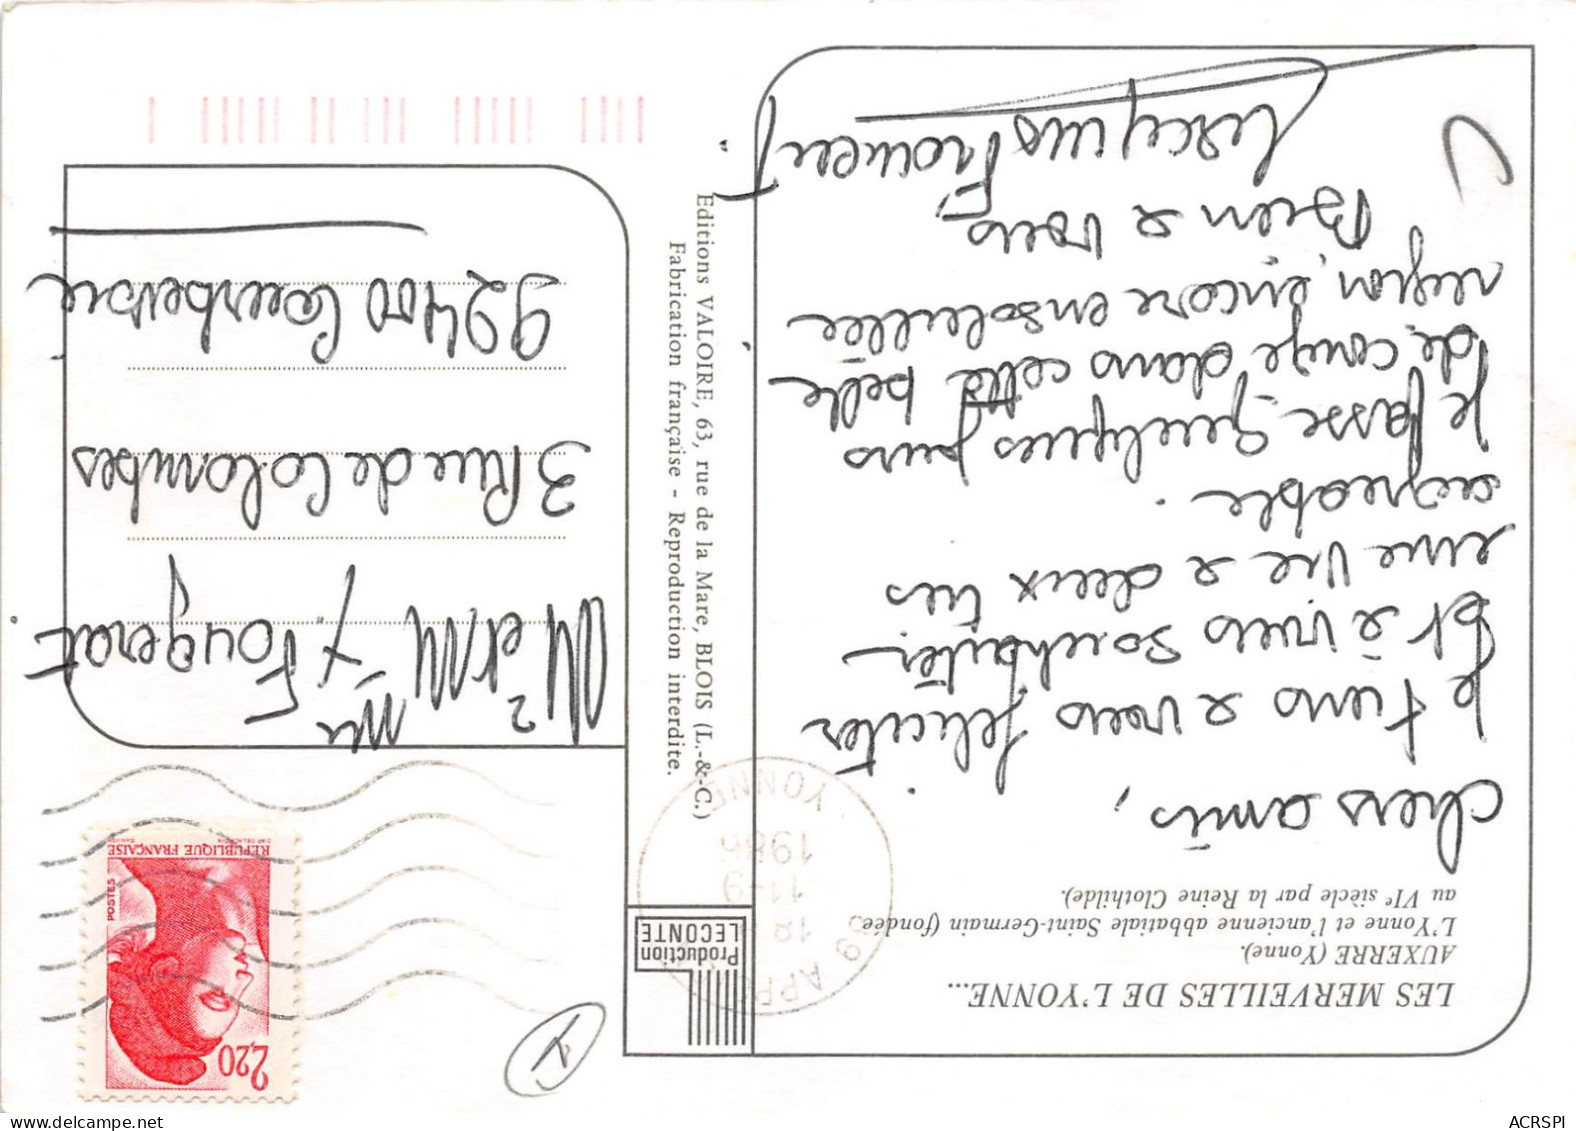 LES MERVEILLES DE L'YONNE...
AUXERRE (Yonne).
L'Yonne et l'ancienne abbatiale Saint-Germain (fondée
au VIe siècle par la Reine Clothilde).
Chers amis,
Je tiens a vous feliciter
Et a vous souhaiter
une vie a deux très
agreable.
Je passe quelques jours
de congé dans cette belle
region, encore ensoleillée
Bien a vous
Production
LECONTE
Editions VALOIRE, 63, rue de la Mare, BLOIS (L.-&-C.)
Fabrication française - Reproduction interdite.
YONNE
11-9
1986
2,20
POSTES
REPUBLIQUE FRANÇAISE
Mr et Mme Fougerat
3 Rue de Colombes
92400 Courbevoie
ACRSPI